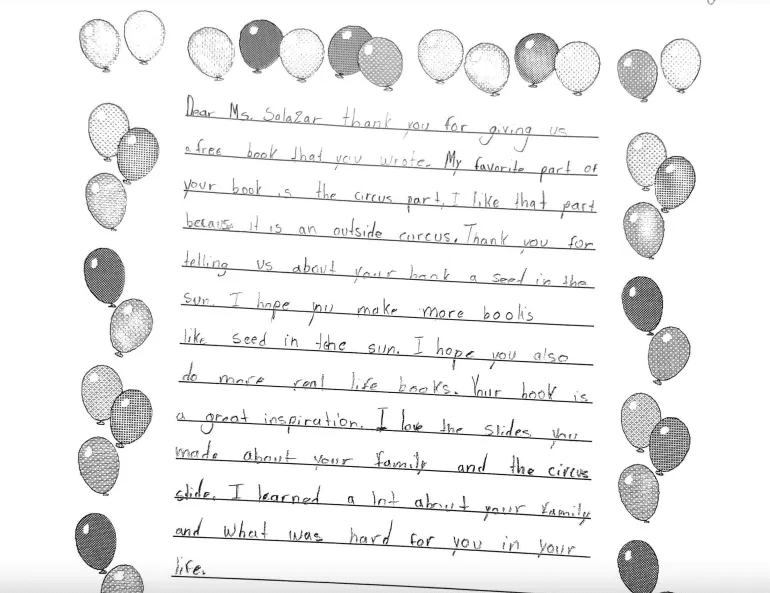 Dear Ms. Salazar thank you for giving us
a free book that you wrote. My favorite part of
your book is the circus part. I like that part
because it is an outside circus. Thank you for
telling us about your book a seed in the
sun. I hope you make more books
like seed in the sun. I hope you also
do more real life books. Your book is
a great inspiration. I love the slides you
made about your family and the circus
slide. I learned a lot about your family
and what was hard for you in your
life.